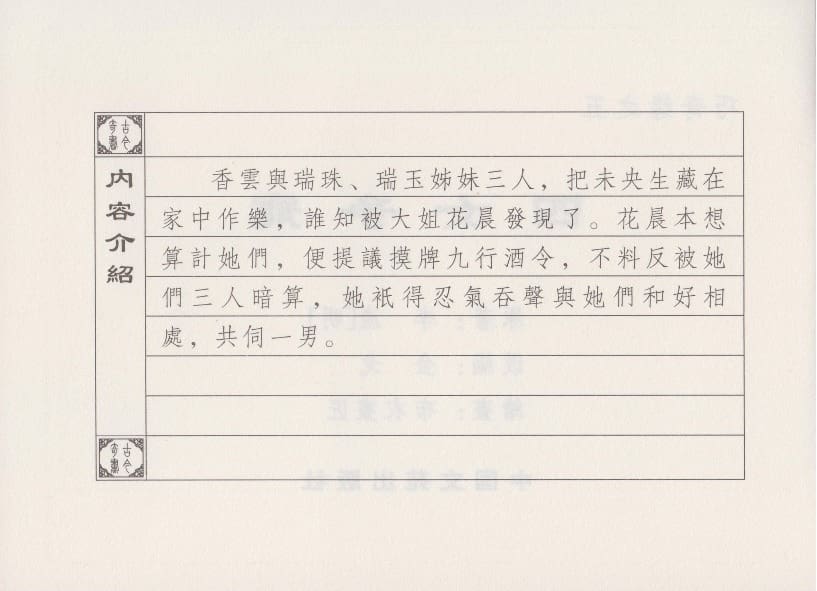 古今奇書
內容介紹
香雲與瑞珠、瑞玉姊妹三人，把未央生藏在
家中作樂，誰知被大姐花晨發現了。花晨本想
算計她們，便提議摸牌九行酒令，不料反被她
們三人暗算，她衹得忍氣吞聲與她們和好相
處，共伺一男。
古今奇書